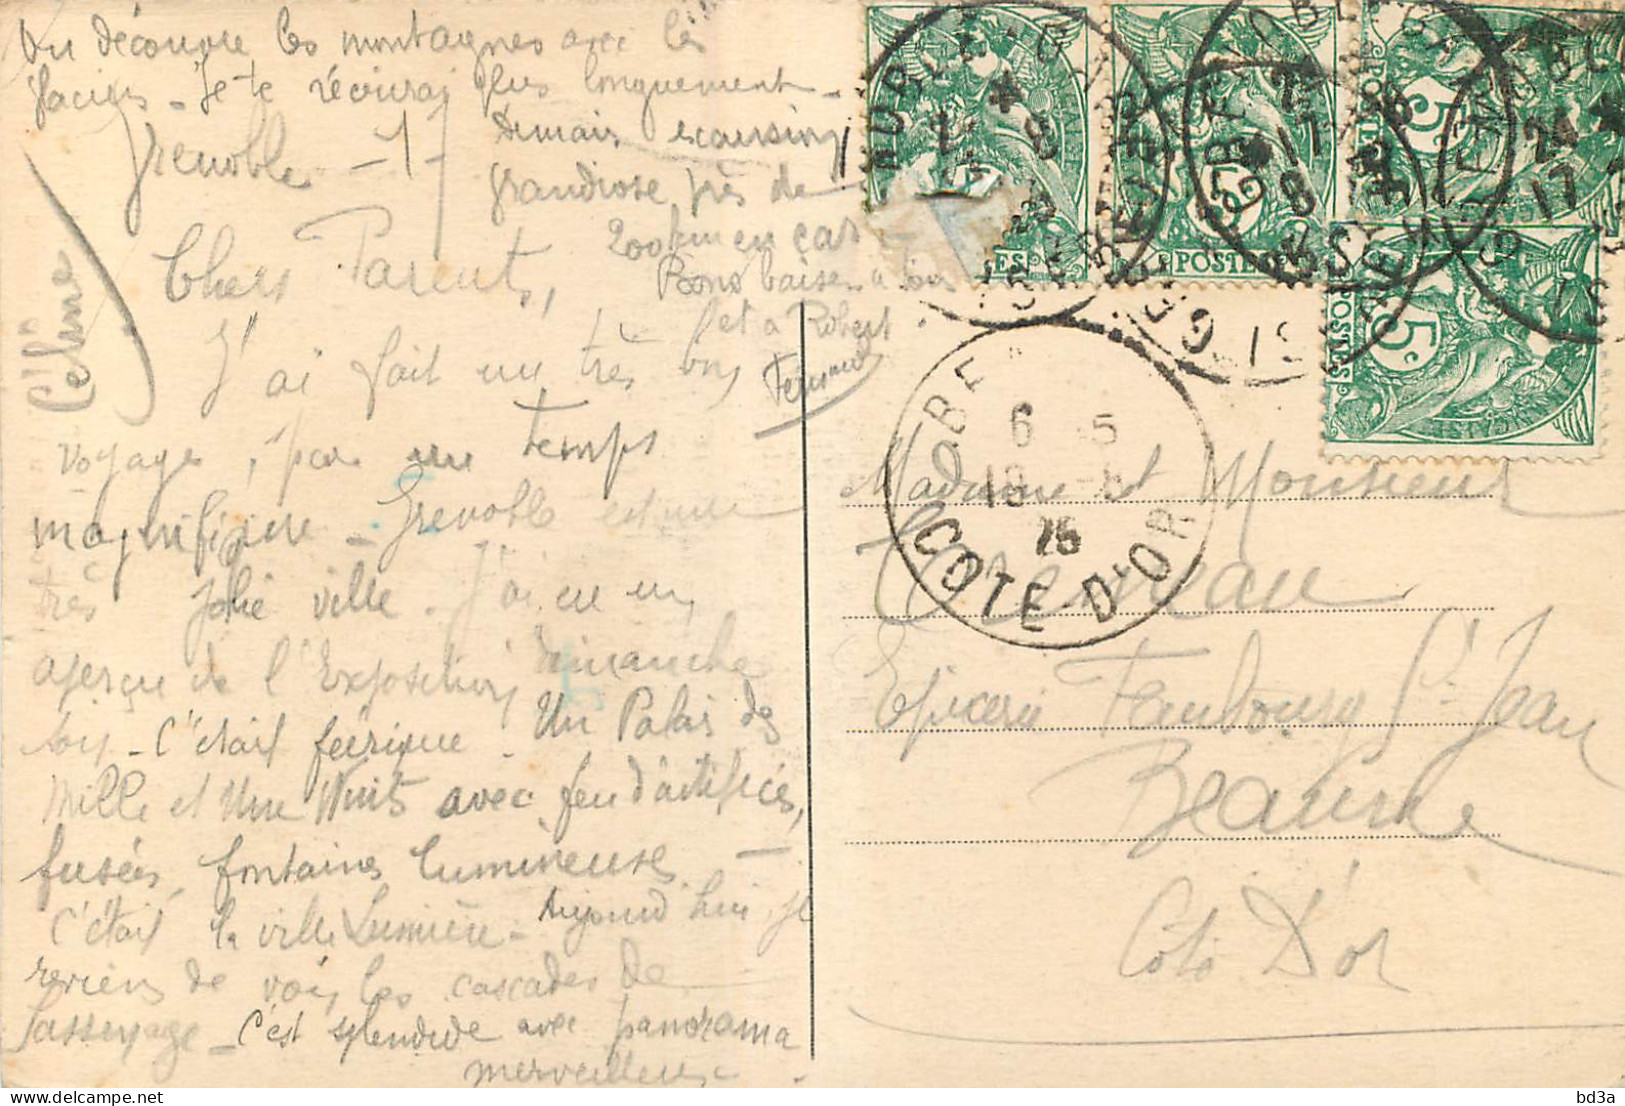 On découvre les montagnes avec les
glaciers - Je te récrirai plus longuement -
Grenoble - 1 -
Demain excursion
grandiose près de
200 km en car
Bons baisers à tous
et à Robert
Fernand
Céline
Chers Parents,
J'ai fait un très bon
voyage, par un temps
magnifique - Grenoble est une
très jolie ville. J'ai eu un
aperçu de l'Exposition dimanche
soir - C'était féérique. Un Palais des
Mille et Une Nuits avec feu d'artifices,
fusées, fontaines lumineuses -
C'était la ville Lumière - Aujourd'hui, je
reviens de voir les cascades de
Sassenage - C'est splendide avec panorama
merveilleux -
Madame et Monsieur
Epicerie Faubourg St Jean
Beaune
Côte D'or
GRENOBLE
GRENOBLE
ISERE
24
17
POSTES
5c
POSTES
5c
POSTES
5c
6 - 5
25
COTE-D'OR
bd3a